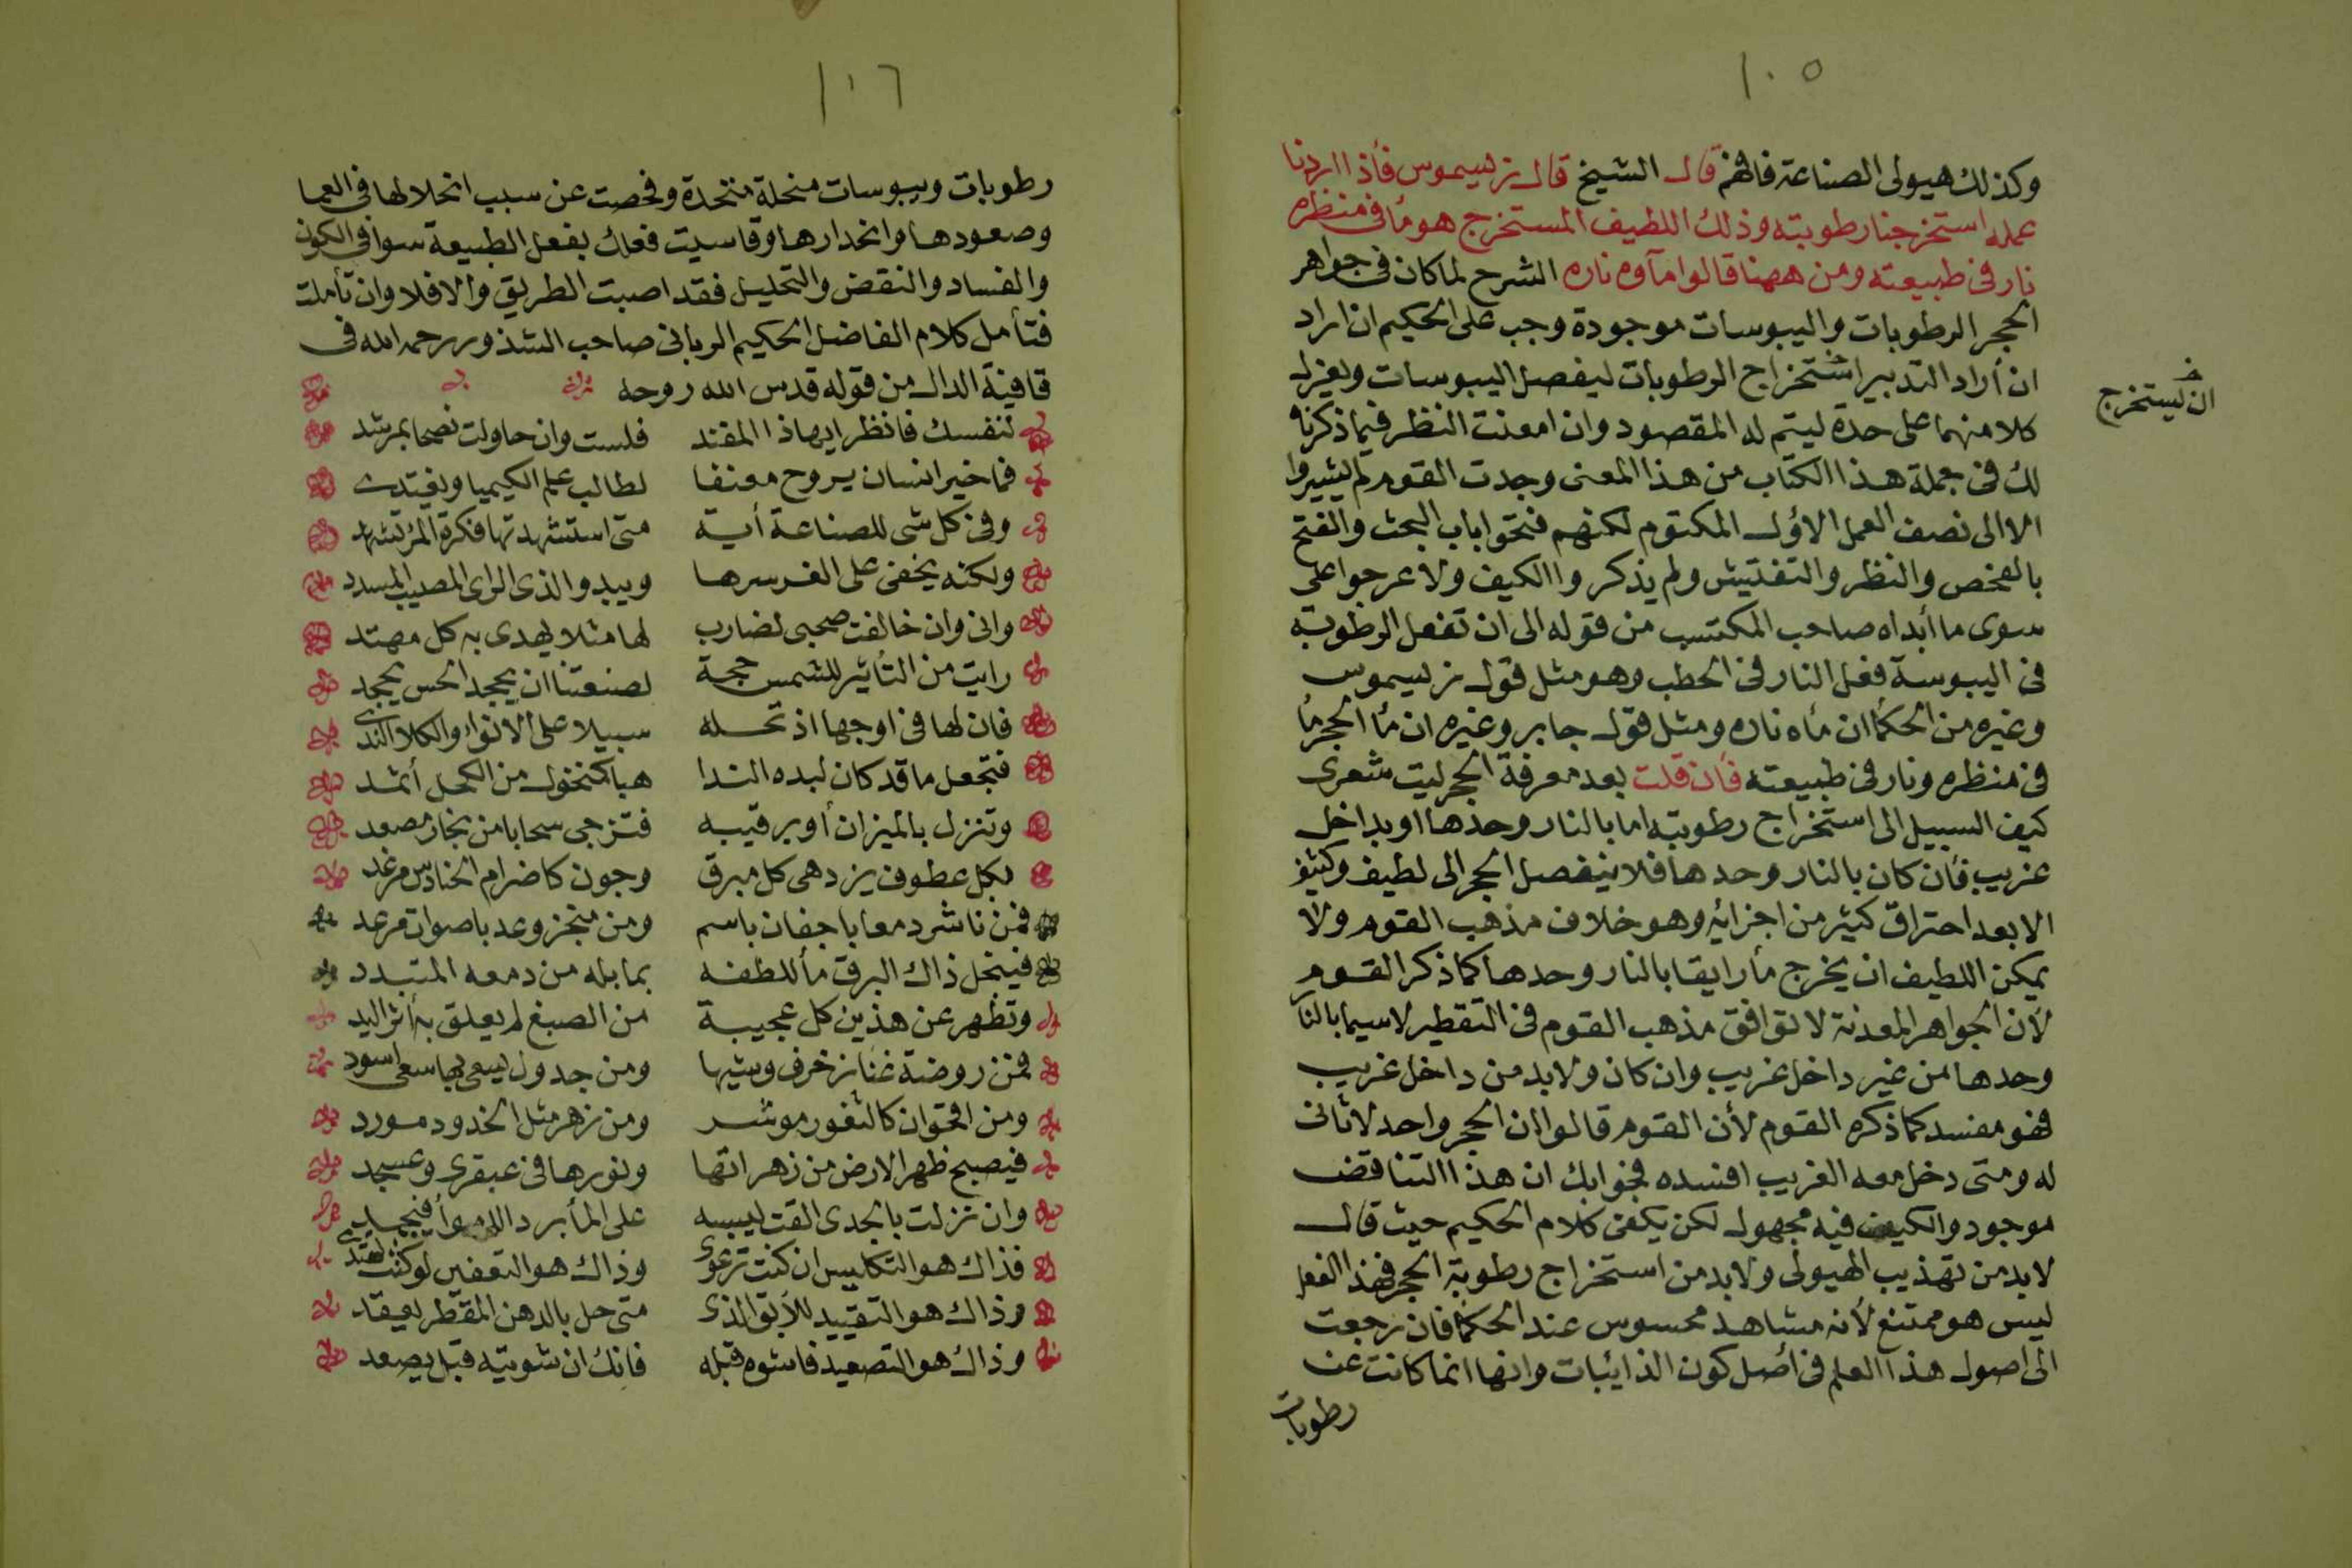 ١٠٥
وكذلك هيولى الصناعة فافهم قال الشيخ قال زيسيموس فأذا اردنا
عمله استخرجنا رطوبته وذلك اللطيف المستخرج هو مأ فى منظره
نار فى طبيعته ومن ههنا قالوا مآوه ناره الشرح لما كان فى جواهر
الحجر الرطوبات واليبوسات موجودة وجب على الحكيم ان اراد
ان أراد التدبير استخراج الرطوبات ليفصل اليبوسات ويعزل
ان يستخرج
كلا منهما على حدة ليتم له المقصود وان امعنت النظر فيما ذكرناه
لك فى جملة هذا الكتاب من هذا المعنى وجدت القوم لم يشيروا
الا الى نصف العمل الاول المكتوم لكنهم فتحوا باب البحث والفتح
بالفحص والنظر والتفتيش ولم يذكروا الكيف ولا عرجوا على
سوى ما أبداه صاحب المكتسب من قوله الى ان تفعل الرطوبة
فى اليبوسة فعل النار فى الحطب وهو مثل قول زيسيموس
وغيره من الحكمأ ان مأه ناره ومثل قول جابر وغيره ان مأ الحجر مأ
فى منظره ونار فى طبيعته فأن قلت بعد معرفة الحجر ليت شعرى
كيف السبيل الى استخراج رطوبته اما بالنار وحدها او بداخل
غريب فأن كان بالنار وحدها فلا ينفصل الحجر الى لطيف وكثيف
الا بعد احتراق كثير من اجزائه وهو خلاف مذهب القوم ولا
يمكن اللطيف ان يخرج مأ رايقا بالنار وحدها كما ذكر القوم
لأن الجواهر المعدنة لا توافق مذهب القوم فى التقطير لاسيما بالنار
وحدها من غير داخل غريب وان كان ولابد من داخل غريب
فهو مفسد كما ذكره القوم لأن القوم قالوا ان الحجر واحد لا ثانى
له ومتى دخل معه الغريب افسده فجوابك ان هذا التناقض
موجود والكيف فيه مجهول لكن يكفى كلام الحكيم حيث قال
لابد من تهذيب الهيولى ولابد من استخراج رطوبة الحجر فهذا الفعل
ليس هو ممتنع لأنه مشاهد محسوس عند الحكمأ فان رجعت
الى اصول هذا العلم فى أصل كون الذائبات وانها انما كانت عن
رطوبات
١٠٦
رطوبات ويبوسات منحلة متحدة وفحصت عن سبب انحلالها فى العما
وصعودها وانحدارها وقاسيت فعلك بفعل الطبيعة سوا فى الكون
والفساد والنقض والتحليل فقد اصبت الطريق والا فلا وان تأملت
فتأمل كلام الفاضل الحكيم الربانى صاحب الشذور رحمه الله فى
قافية الدال من قوله قدس الله روحه
لنفسك فانظر ايهاذا المقند فلست وان حاولت نصحا بمرشد
فما خير انسان يروح معنفا لطالب علم الكيميا ويغتدى
وفى كل شى للصناعة أية متى استشهدتها فكرة المرء تشهد
ولكنه يخفى على الغر سرها ويبدو الذى الراى المصيب المسدد
وانى وان خالفت صحبى لضارب لها مثلا يهدى به كل مهتد
رايت من التأثير للشمس حجة لصنعتنا ان يجحد الحس يجحد
فان لها فى اوجها اذ تحله سبيلا على الانوأ والكلا الندى
فتجعل ما قد كان لبده الندا هبا كمنخول من الكحل أثمد
وتنزل بالميزان أو برقيبه فتزجى سحابا من بخار مصعد
بكل عطوف يزدهى كل مبرق وجون كاضرام الحنادس مرغد
فمن ناشر دمعا باجفان باسم ومن منجز وعد باصوات مرعد
فينحل ذاك البرق مأ للطفه بما بله من دمعه المتبدد
وتظهر عن هذين كل عجيبة من الصبغ لم يعلق به أثر اليد
فمن روضة غنا زخرف وشيها ومن جدول يسعى بها سعى اسود
ومن اقحوان كالثغور موشر ومن زهر مثل الخدود مورد
فيصبح ظهر الارض من زهراتها ونورها فى عبقرى وعسجد
وان نزلت بالجدى القت ليبسه على المأ بردا
فذاك هو التكليس ان كنت ترعوى وذاك هو التعفين لو كنت تهتدى
وذاك هو التقييد للأبق الذى متى حل بالدهن المقطر يعقد
وذاك هو التصعيد فاشوه قبله فانك ان شويته قبل يصعد